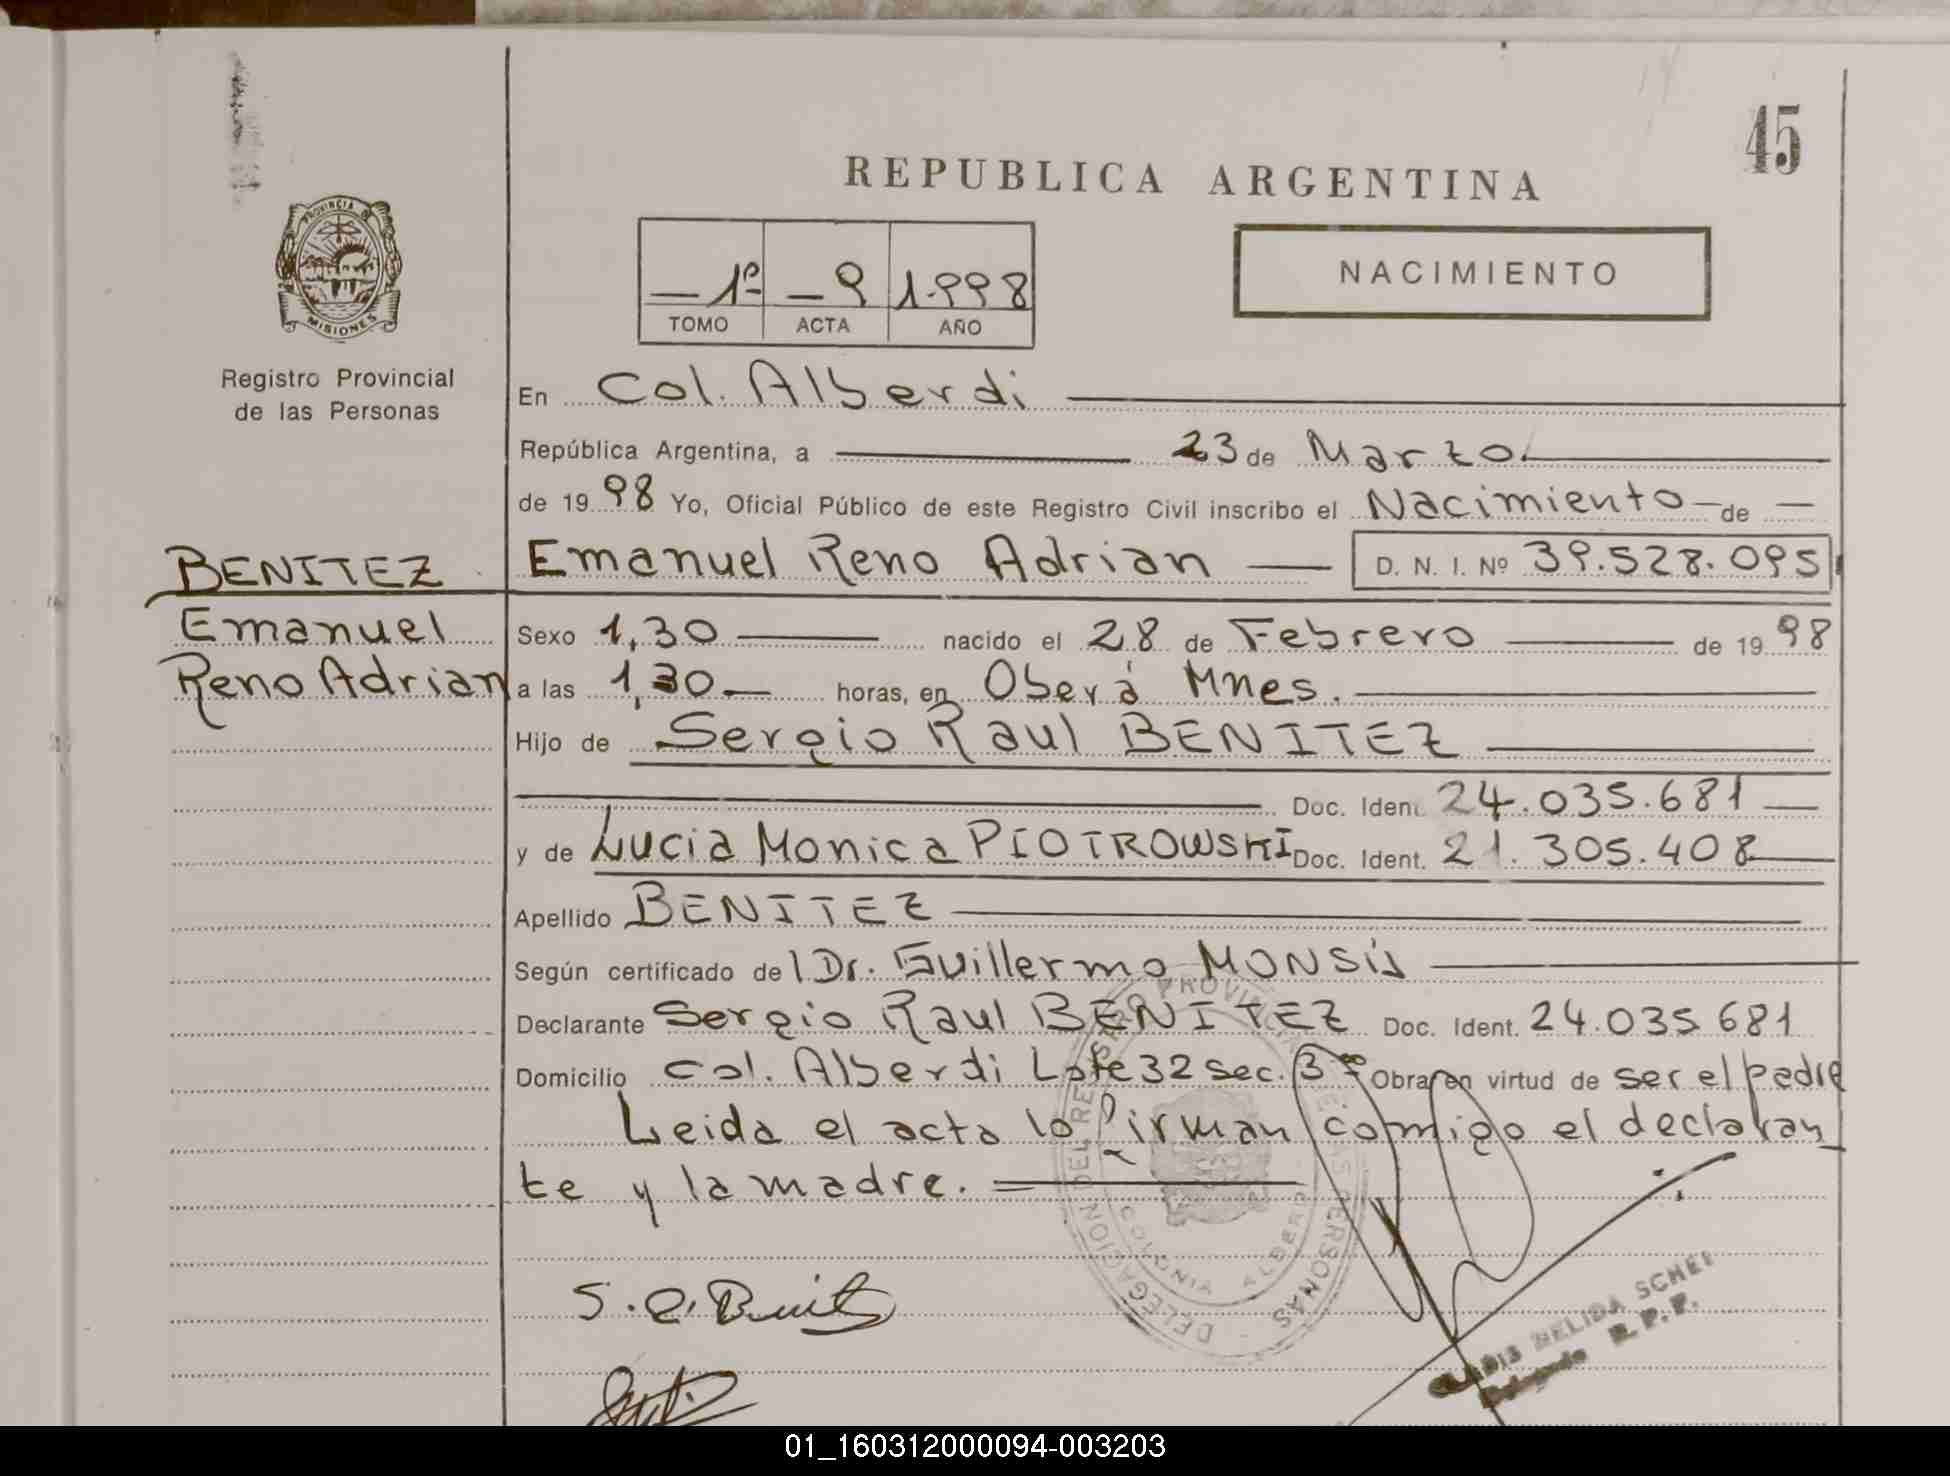 45
REPUBLICA ARGENTINA
PROVINCIA DE
MISIONES
Registro Provincial
de las Personas
— 1º — 9 1.998
TOMO ACTA AÑO
NACIMIENTO
En Col. Alberdi
República Argentina, a 23 de Marzo.
de 19 98 Yo, Oficial Público de este Registro Civil inscribo el Nacimiento — de —
BENITEZ Emanuel Reno Adrian — D. N. I. Nº 39.528.095
Emanuel Sexo 1,30 — nacido el 28 de Febrero — de 19 98
Reno Adrian a las 1,30 — horas, en Oberá Mnes.
Hijo de Sergio Raul BENITEZ
Doc. Ident. 24.035.681 —
y de Lucia Monica PIOTROWSKI Doc. Ident. 21.305.408
Apellido BENITEZ
Según certificado del Dr. Guillermo
Declarante Sergio Raul BENITEZ Doc. Ident. 24.035 681
Domicilio Col. Alberdi Lote 32 sec. 3ª Obra en virtud de ser el padre
Leida el acta lo firman conmigo el declaran
te y la madre.
DELEGACION DEL REGISTRO PROVINCIAL DE LAS PERSONAS
COLONIA ALBERDI
S. R. Benitez
NELIDA
Delegado R. P. P.
01_160312000094-003203